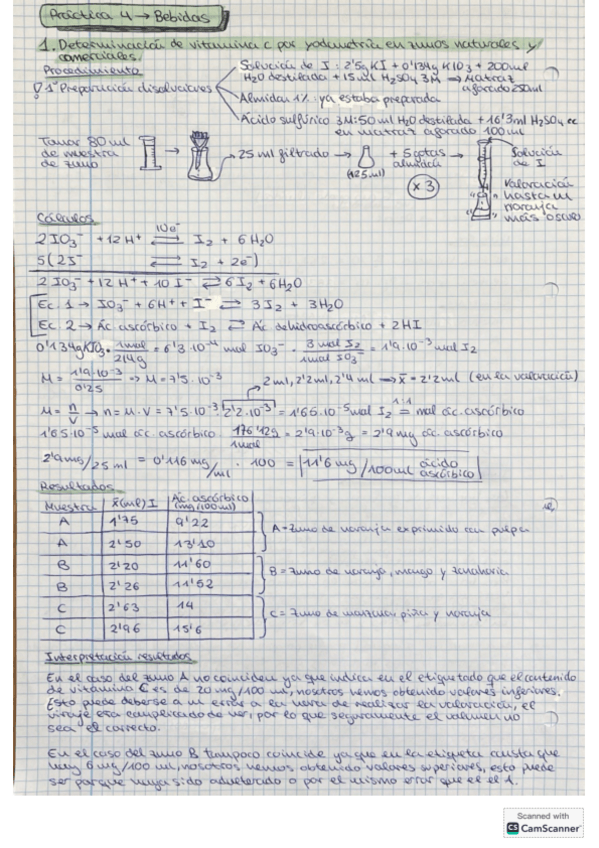 Práctica 4 → Bebidas
1. Determinación de vitamina C por yodimetría en zumos naturales y
comerciales.
Procedimiento
Solución de I: 2'5g KI + 0'134g KIO3 + 200ml
H2O destilada + 15ml H2SO4 3M → Matraz
aforado 250ml
1º Preparación disoluciones
Almidón 1% ya estaba preparada
Ácido sulfúrico 3M: 50 ml H2O destilada + 16'3ml H2SO4 cc
en matraz aforado 100ml
Tomar 80ml
de muestra
de zumo
→ 25 ml filtrado → (125ml) + 5 gotas
almidón →
x 3
Solución
de I
Valoración
hasta un
naranja
más oscuro
Cálculos
2 IO3⁻ + 12 H⁺ 10e⁻ ⇌ I2 + 6 H2O
5(2I⁻ ⇌ I2 + 2e⁻)
2 IO3⁻ + 12 H⁺ + 10 I⁻ ⇌ 6 I2 + 6 H2O
Ec. 1 → IO3⁻ + 6H⁺ + I⁻ ⇌ 3 I2 + 3H2O
Ec. 2 → Ác. ascórbico + I2 ⇌ Ác dehidroascórbico + 2HI
0'134g KIO3 · 1mol/214g = 6'3·10⁻⁴ mol IO3⁻ · 3 mol I2/1mol IO3⁻ = 1'9·10⁻³ mol I2
M = 1'9·10⁻³/0'25 ⇒ M = 7'5·10⁻³
2ml, 2'2ml, 2'4 ml ⇒ x̄ = 2'2ml (en la valoración)
M = n/V → n = M·V = 7'5·10⁻³ · 2'2·10⁻³ = 1'65·10⁻⁵ mol I2 1:1 = mol ác. ascórbico
1'65·10⁻⁵ mol ác. ascórbico · 176'12g/1mol = 2'9·10⁻³g = 2'9 mg ác. ascórbico
2'9mg/25 ml = 0'116 mg/ml · 100 = 11'6 mg/100ml ácido
ascórbico
Resultados
Muestra x̄(ml) I Ác. ascórbico
(mg/100ml)
A 1'75 9'22
A 2'50 13'10
B 2'20 11'60
B 2'26 11'52
C 2'63 14
C 2'96 15'6
A = Zumo de naranja exprimido con pulpa
B = Zumo de naranja, mango y zanahoria
C = Zumo de manzana, piña y naranja
Interpretación resultados
En el caso del zumo A no coinciden ya que indica en el etiquetado que el contenido
de vitamina C es de 20 mg/100 ml, nosotros hemos obtenido valores inferiores.
Esto puede deberse a un error a la hora de realizar la valoración, el
viraje era complicado de ver, por lo que seguramente el volumen no
sea el correcto.
En el caso del zumo B tampoco coincide ya que en la etiqueta consta que
hay 6 mg/100 ml, nosotros hemos obtenido valores superiores, esto puede
ser porque haya sido adulterado o por el mismo error que el 1.
Scanned with
CS CamScanner